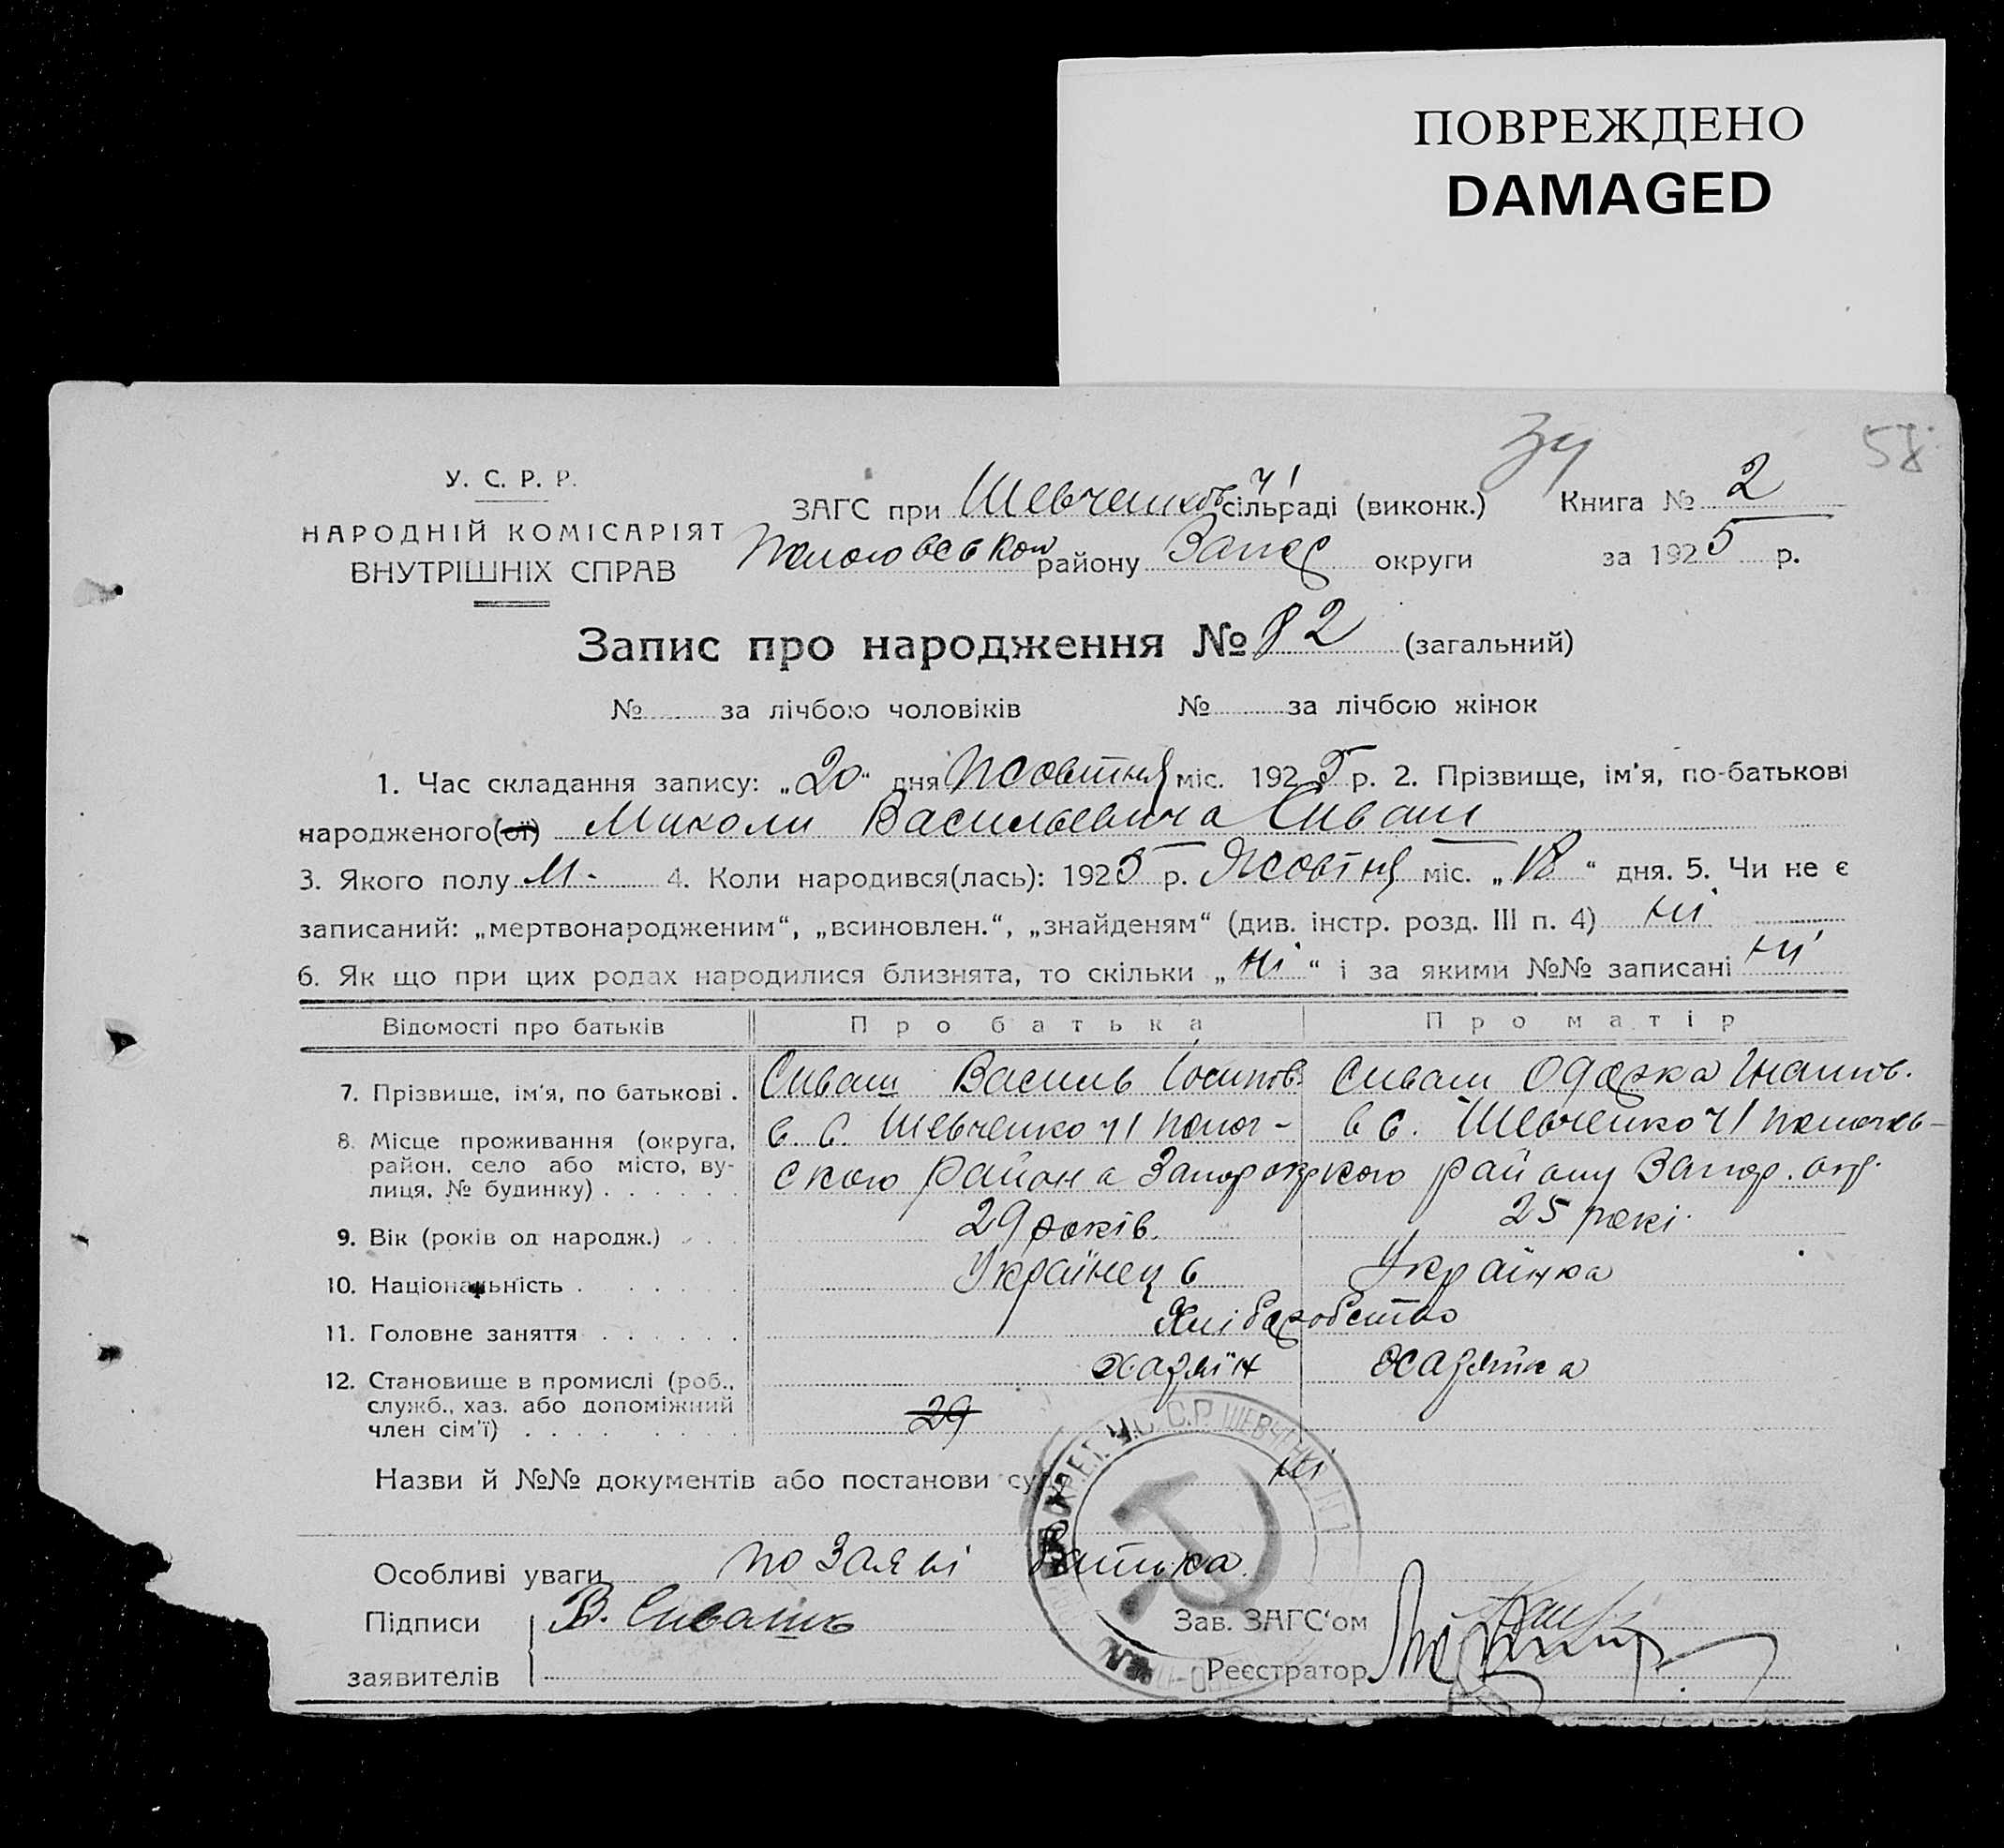 ПОВРЕЖДЕНО
DAMAGED
34 58
У. С. Р. Р.
НАРОДНІЙ КОМІСАРІЯТ
ВНУТРІШНІХ СПРАВ
ЗАГС при Шевченков ч1 сільраді (виконк.) Книга № 2
Пологовського району Запор округи за 1925 р.
Запис про народження № 82 (загальний)
№ за лічбою чоловіків № за лічбою жінок
1. Час складання запису: „20“ дня Жовтня міс. 1925 р. 2. Прізвище, ім'я, по-батькові
народженого(ої) Миколи Васильевича Сиваш
3. Якого полу М. 4. Коли народився(лась): 1925 р. Жовтня міс. „18“ дня. 5. Чи не є
записаний: „мертвонародженим“, „всиновлен.“, „знайденям“ (див. інстр. розд. III п. 4) ні
6. Як що при цих родах народилися близнята, то скільки „ні“ і за якими №№ записані ні
Відомості про батьків Про батька Про матір
7. Прізвище, ім'я, по батькові . Сиваш Василь Іосипов. Сиваш Одарка Ігнатов.
8. Місце проживання (округа, район, село або місто, вулиця, № будинку) в с. Шевченко ч1 Полог- в с. Шевченко ч1 Пологов-
ського района Запор окр ського району Запор. окр.
9. Вік (років од народж.) 29 років. 25 рокі.
10. Національність Українець Українка
11. Головне заняття Хліборобство
12. Становище в промислі (роб., служб., хаз. або допоміжний член сім'ї) хазяїн хазяйка
29
Назви й №№ документів або постанови су ні
Особливі уваги по заяві батька.
Підписи В. Сивашь Зав. ЗАГС'ом
заявителів Реєстратор